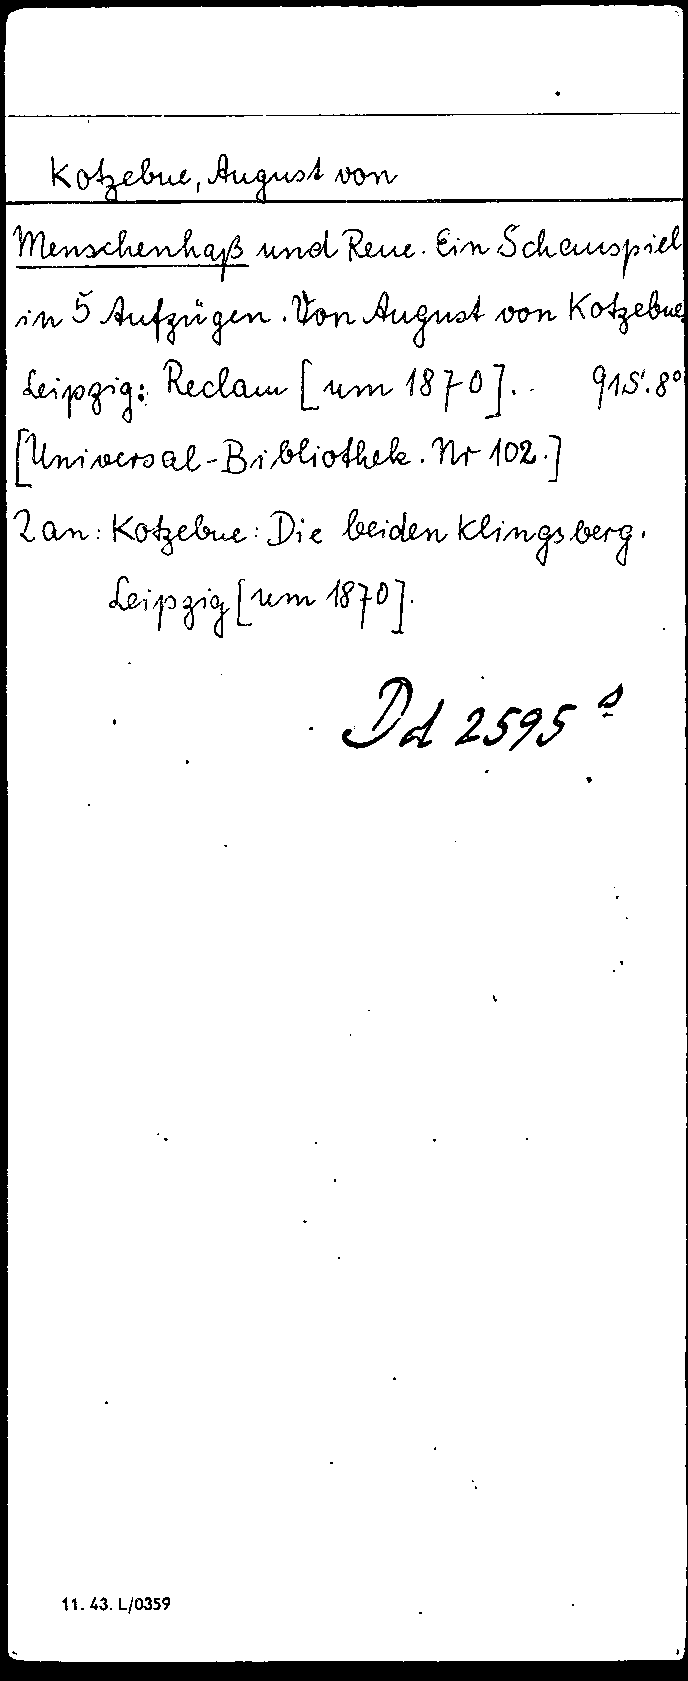 Kotzebue, August von
Menschenhaß und Reue. Ein Schauspiel
in 5 Aufzügen. Von August von Kotzebue.
Leipzig: Reclam [um 1870]. 91 S. 8°
[Universal-Bibliothek. Nr 102.]
2 an: Kotzebue: Die beiden Klingsberg.
Leipzig [um 1870].
Dd 2595 s
11. 43. L/0359